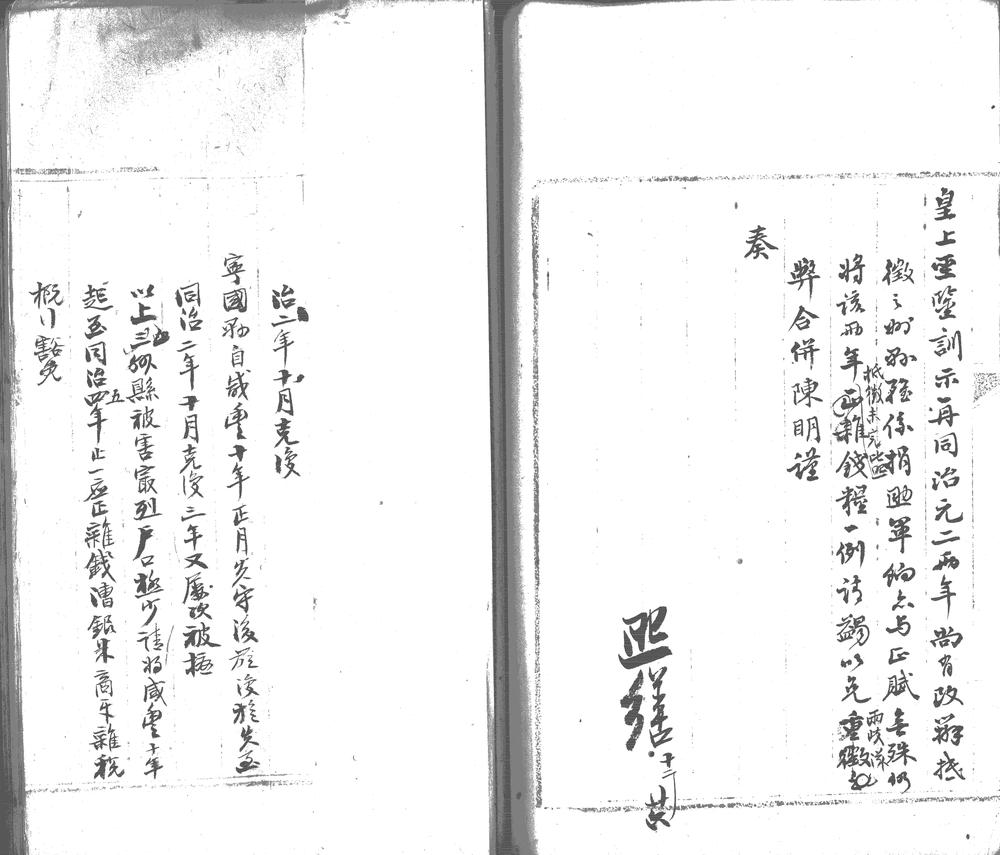 皇上聖鑒訓示再同治元二兩年尚有改辦抵
徵之州縣雖係捐助軍餉亦与正賦無殊仍
將該兩年正雜錢糧一例請蠲以免重徵
抵徵未完
兩歧
弊合併陳明謹
奏
熙繕
十二
治二年十月克復
寧國縣自咸豐十年正月失守後旋復旋失至
同治二年十月克復三年又屢次被擾
以上三州縣被害最烈戶口極少請將咸豐十年
起至同治四年止一應正雜錢漕銀米商牙雜稅
五
概行豁免